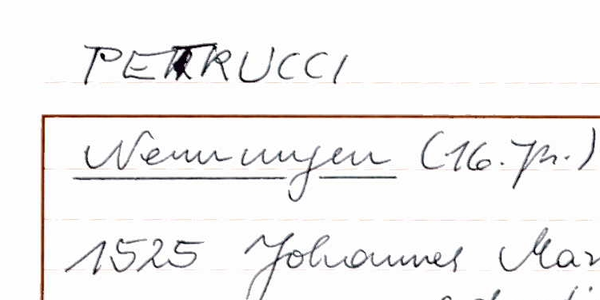 PETRUCCI
Nennungen (16. Jh.)
1525 Johannes Mar